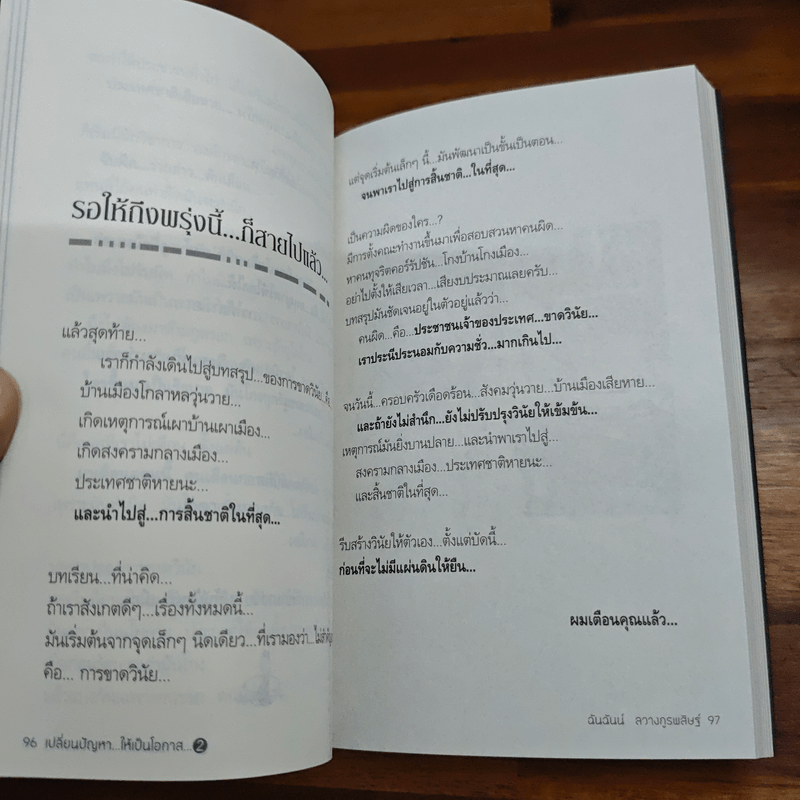 รอให้ถึงพรุ่งนี้...ก็สายไปแล้ว...
แล้วสุดท้าย...
เราก็กำลังเดินไปสู่บทสรุป...ของการขาดวินัย...
บ้านเมืองโกลาหลวุ่นวาย...
เกิดเหตุการณ์เผาบ้านเผาเมือง...
เกิดสงครามกลางเมือง...
ประเทศชาติหายนะ...
และนำไปสู่...การสิ้นชาติในที่สุด...
บทเรียน...ที่น่าคิด...
ถ้าเราสังเกตดีๆ...เรื่องทั้งหมดนี้...
มันเริ่มต้นจากจุดเล็กๆ นิดเดียว...ที่เรามองว่า...
คือ... การขาดวินัย...
96 เปลี่ยนปัญหา...ให้เป็นโอกาส...2
แต่จุดเริ่มต้นเล็กๆ นี้...มันพัฒนาเป็นขั้นเป็นตอน...
จนพาเราไปสู่การสิ้นชาติ...ในที่สุด...
เป็นความผิดของใคร...?
มีการตั้งคณะทำงานขึ้นมาเพื่อสอบสวนหาคนผิด...
หาคนทุจริตคอร์รัปชัน...โกงบ้านโกงเมือง...
อย่าไปตั้งให้เสียเวลา...เสียงบประมาณเลยครับ...
บทสรุปมันชัดเจนอยู่ในตัวอยู่แล้วว่า...
คนผิด...คือ...ประชาชนเจ้าของประเทศ...ขาดวินัย...
เราประนีประนอมกับความชั่ว...มากเกินไป...
จนวันนี้...ครอบครัวเดือดร้อน...สังคมวุ่นวาย...บ้านเมืองเสียหาย...
และถ้ายังไม่สำนึก...ยังไม่ปรับปรุงวินัยให้เข้มข้น...
เหตุการณ์มันยิ่งบานปลาย...และนำพาเราไปสู่...
สงครามกลางเมือง...ประเทศชาติหายนะ...
และสิ้นชาติในที่สุด...
รีบสร้างวินัยให้ตัวเอง...ตั้งแต่บัดนี้...
ก่อนที่จะไม่มีแผ่นดินให้ยืน...
ผมเตือนคุณแล้ว...
ฉันฉันน์ ลวางกูรพสิษฐ์ 97